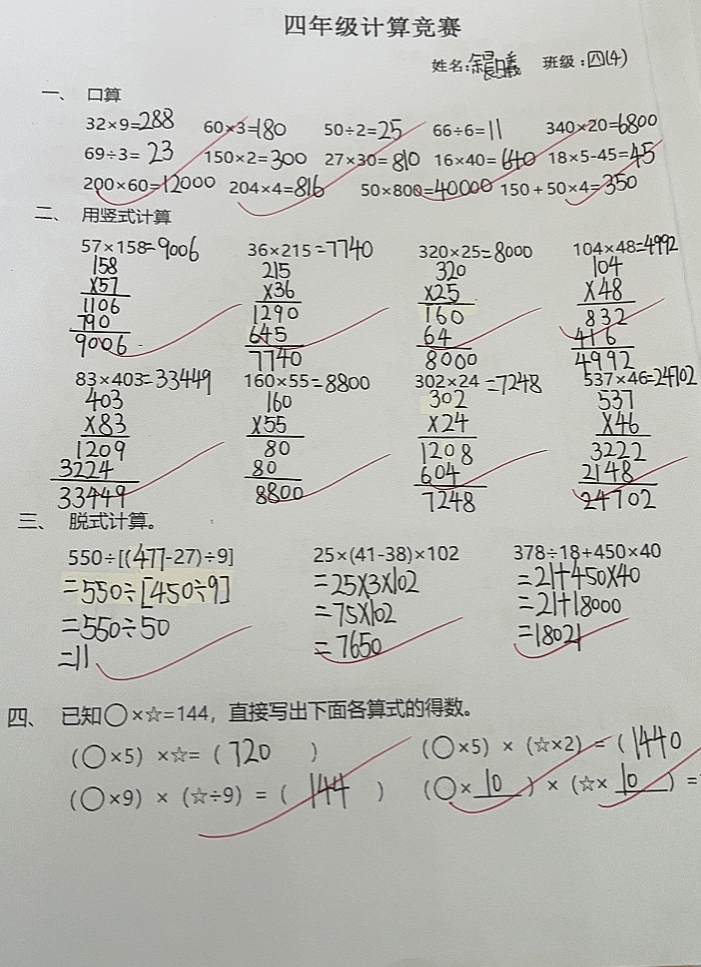 四年级计算竞赛
姓名: 晨曦 班级:四(4)
一、 口算
32×9=288 60×3=180 50÷2=25 66÷6=11 340×20=6800
69÷3=23 150×2=300 27×30=810 16×40=640 18×5-45=45
200×60=12000 204×4=816 50×800=40000 150+50×4=350
二、 用竖式计算
57×158=9006 36×215=7740 320×25=8000 104×48=4992
158 215 320 104
×57 ×36 ×25 ×48
1106 1290 160 832
790 645 64 416
9006 7740 8000 4992
83×403=33449 160×55=8800 302×24=7248 537×46=24702
403 160 302 537
×83 ×55 ×24 ×46
1209 80 1208 3222
3224 80 604 2148
33449 8800 7248 24702
三、 脱式计算。
550÷[(477-27)÷9] 25×(41-38)×102 378÷18+450×40
=550÷[450÷9] =25×3×102 =21+450×40
=550÷50 =75×102 =21+18000
=11 =7650 =18021
四、 已知○×☆=144,直接写出下面各算式的得数。
(○×5)×☆=(720) (○×5)×(☆×2)=(1440
(○×9)×(☆÷9)=(144) (○×10)×(☆×10)=